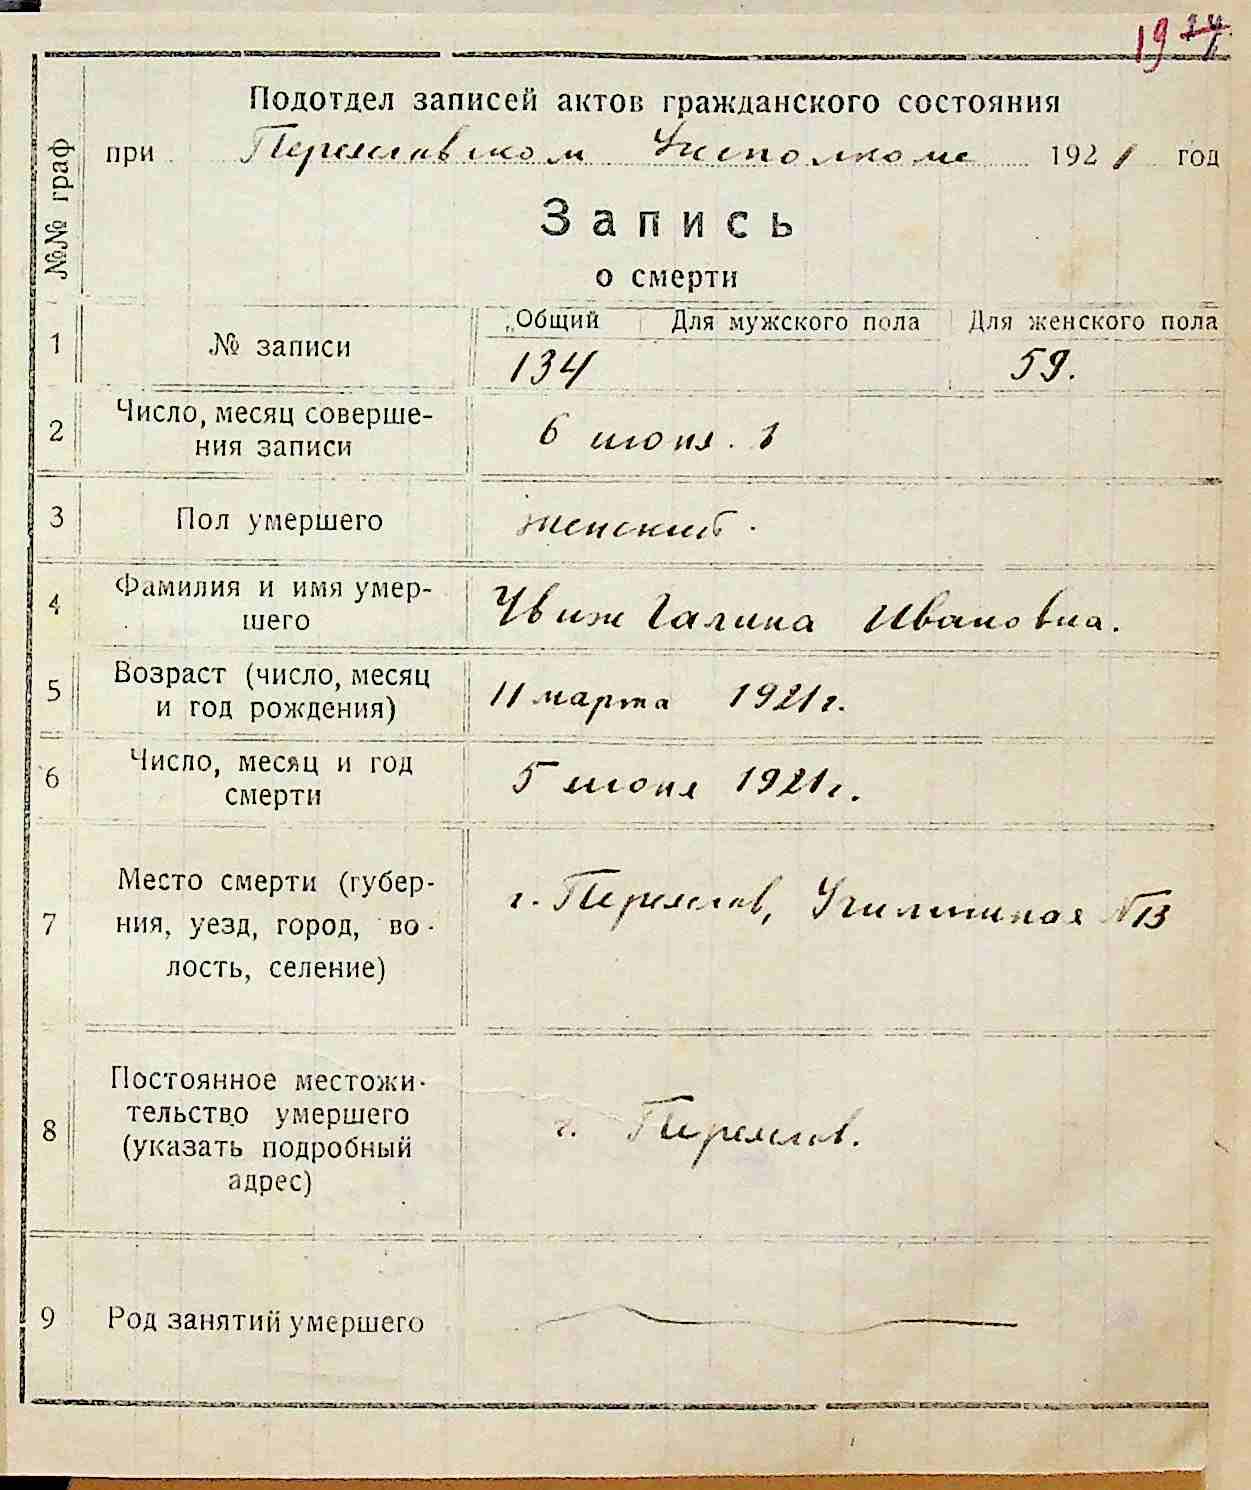 19
Подотдел записей актов гражданского состояния
при Переяславском Уисполкоме 1921 год
№№ граф
Запись
о смерти
1 № записи Общий Для мужского пола Для женского пола
134 59.
2 Число, месяц соверше-
ния записи
6 июня.
3 Пол умершего женский.
4 Фамилия и имя умер-
шего
Чвиж Галина Ивановна.
5 Возраст (число, месяц
и год рождения)
11 марта 1921 г.
6 Число, месяц и год
смерти
5 июня 1921 г.
7 Место смерти (губер-
ния, уезд, город, во-
лость, селение)
г. Переяслав, №13
8 Постоянное местожи-
тельство умершего
(указать подробный
адрес)
г. Переяслав.
9 Род занятий умершего